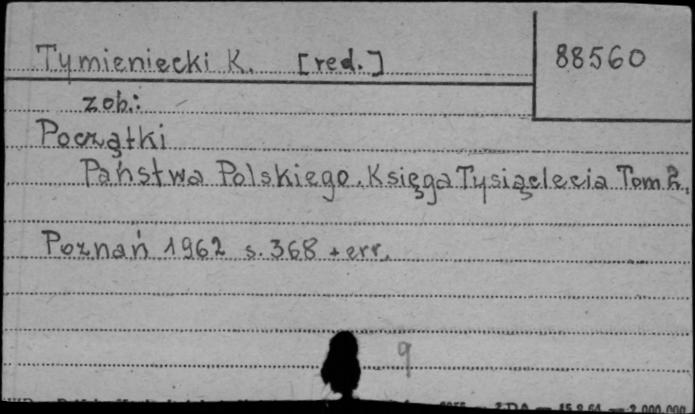 Tymieniecki K. [red.] 88560
zob.:
Początki
Państwa Polskiego. Księga Tysiąclecia Tom 2.
Poznań 1962 s. 368 + err.
9
2.000.000